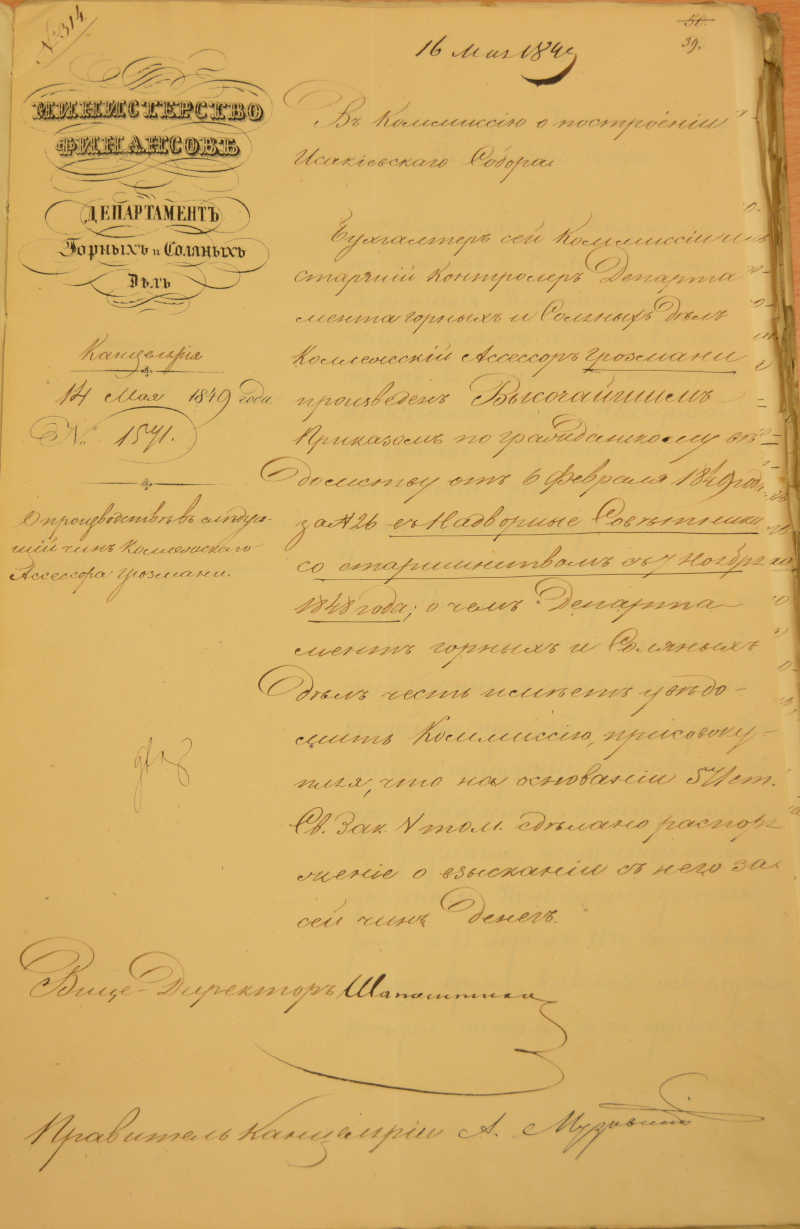 № 314
16 Мая 1849
51.
39.
МИНИСТЕРСТВО
ФИНАНСОВЪ
ДЕПАРТАМЕНТЪ
Горныхъ и Соляныхъ
Дѣлъ
Канцелярія
14 Мая 1849 года
№ 1571.
О производствѣ въ слѣдую-
щій чинъ Коллежскаго
Ассессора Грозмани.
Въ Коммиссію о построеніи
Исакіевскаго Собора
Бухгалтеръ сей Коммиссіи и
старшій Контролеръ Департа
мента горныхъ и Соляныхъ Дѣлъ
Коллежскій Ассессоръ Грозмани
произведенъ Высочайшимъ
Приказомъ по гражданскому вѣ-
домству отъ 6 февраля 1849 года
за № 26 въ Надворные Совѣтники
со старшинствомъ съ 7 Ноября
1848 года; о чемъ Департа
ментъ горныхъ и Соляныхъ
Дѣлъ честь имѣетъ увѣдо-
мить Коммиссію, присовоку-
пляя, что на основаніи 571 ст.
Св. Зак. V том. сдѣлано распоря
женіе о взысканіи съ него за
сей чинъ Денегъ.
Вице-Директоръ
Правитель Канцеляріи А.